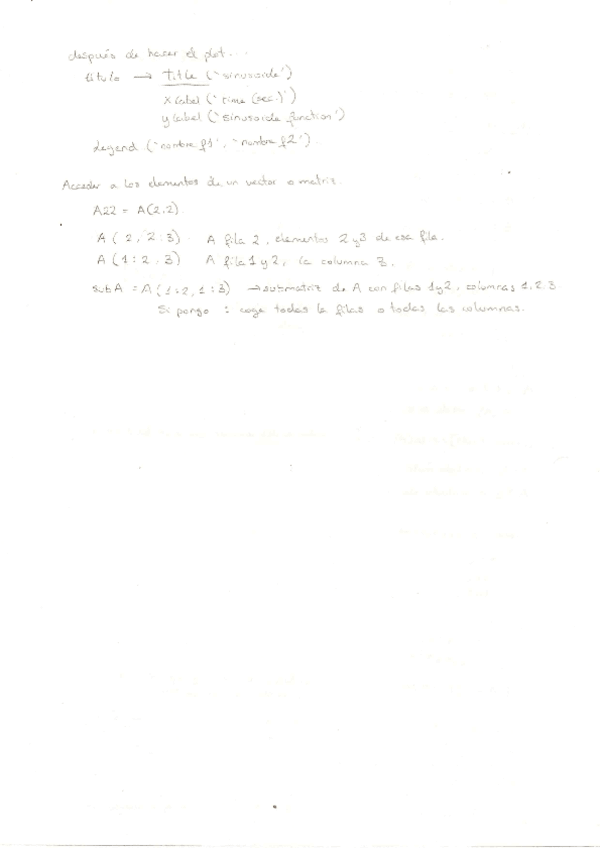 después de hacer el plot...
título → Title ('sinusoide')
xlabel ('time (sec.)')
ylabel ('sinusoide function')
Legend ('nombre f1', 'nombre f2').
Acceder a los elementos de un vector o matriz.
A22 = A(2,2)
A (2, 2:3) A fila 2, elementos 2 y 3 de esa fila.
A (1:2, 3) A fila 1 y 2, la columna 3.
subA = A (1:2, 1:3) → submatriz de A con filas 1 y 2, columnas 1, 2, 3.
Si pongo : coge todas la filas o todas las columnas.